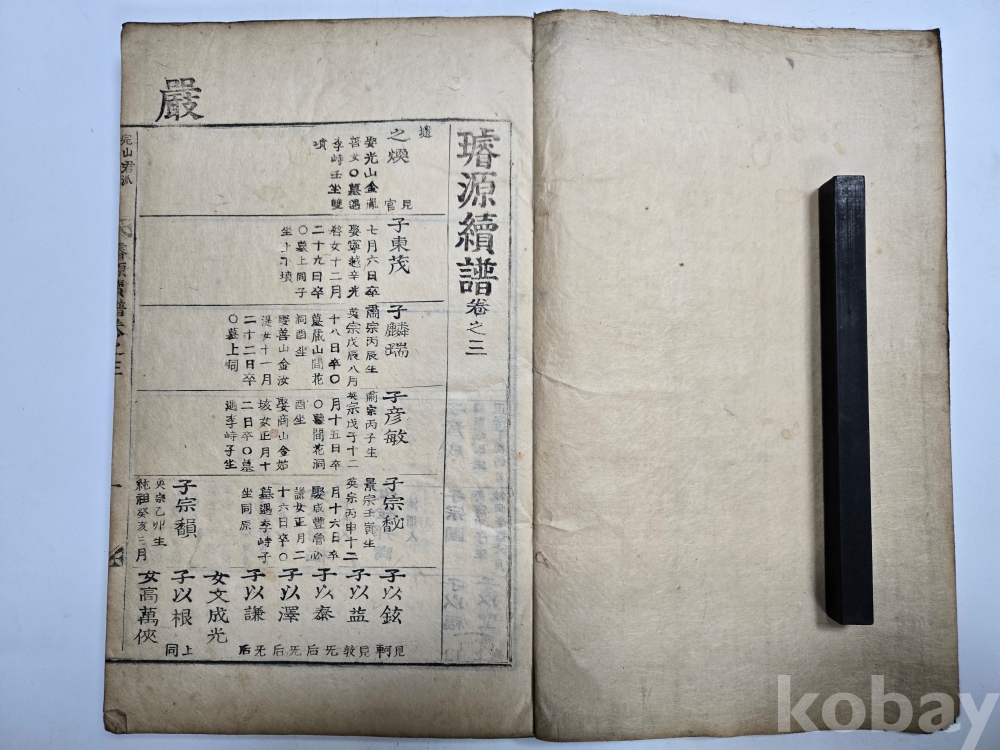 嚴
璿源續譜卷之三
之煥
娶光山金胤
李峙壬坐雙
墳
見
官
子東茂
七月六日卒
娶寧越辛光
啓女十二月
二十九日卒
○墓上同子
子麟瑞
肅宗丙辰生
英宗戊辰八月
十八日卒○
墓威山間花
洞酉坐
娶善山金汝
湜女十一月
二十二日卒
○墓上同
子彦敏
肅宗丙子生
英宗戊子十二
月十五日卒
○墓間花洞
酉坐
娶商山金
女正月十
二日卒○墓
遇李峙子坐
子宗馝
景宗壬寅生
英宗丙申十二
月十六日卒
娶咸豊魯必
謙女正月二
十六日卒○
墓遇李峙子
坐同原
子宗韻
英宗乙卯生
純祖癸亥三月
子以鉉
子以益
子以泰
子以澤
子以謙
女文成光
子以根
女高萬俠
見軻
見敎
先后
先后
无后
上同
完山君派
kobay